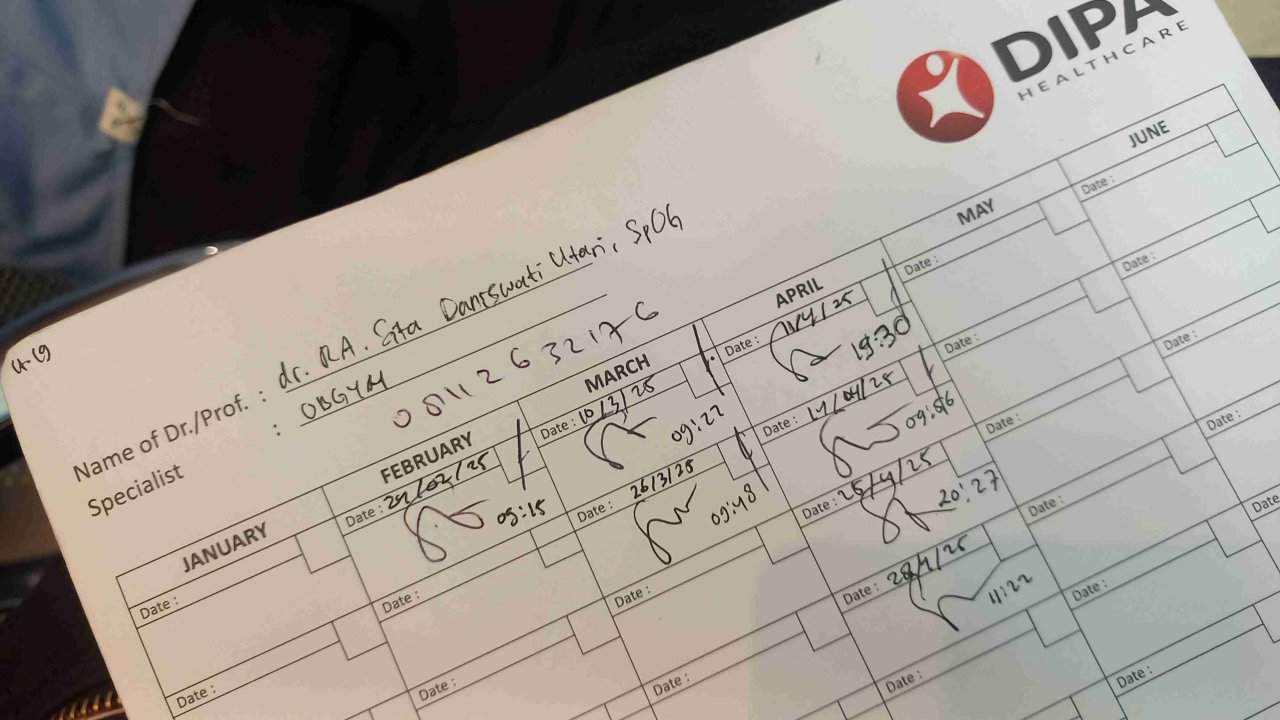 DIPA
HEALTHCARE
Name of Dr./Prof. : dr. RA. Sita Daneswati Utari, SpOG
Specialist : OBGYN
08112632176
JANUARY
FEBRUARY
MARCH
APRIL
MAY
JUNE
Date :
Date :
Date : 24/02/25
09:15
Date :
Date :
Date : 10/3/25
09:22
Date : 26/3/25
09:48
Date :
Date :
Date : 1/4/25
19:30
Date : 14/04/25
09:56
Date : 25/4/25
20:27
Date : 28/4/25
11:22
Date :
Date :
Date :
Date :
Date :
Date :
Date :
Date :
Date :
Date :
Date :
Date :